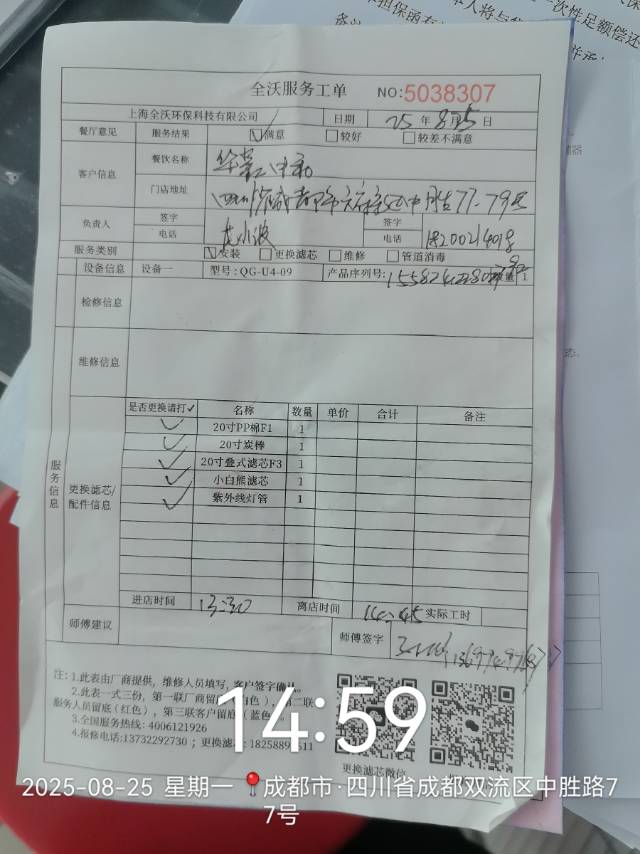 全沃服务工单 NO:5038307
上海全沃环保科技有限公司 日期 25 年 8月25 日
餐厅意见 服务结果 ☑满意 □较好 □较差不满意
客户信息 餐饮名称
门店地址 四川省成都市天府新区中胜路77-79号
负责人 签字 签字
电话 电话
服务类别 ☑安装 □更换滤芯 □维修 □管道消毒
设备信息 设备一 型号:QG-U4-09 产品序列号: 数量 1
检修信息
维修信息
服务信息
更换滤芯/配件信息
是否更换请打✓ 名称 数量 单价 合计 备注
✓ 20寸PP棉F1 1
✓ 20寸炭棒 1
✓ 20寸叠式滤芯F3 1
✓ 小白熊滤芯 1
✓ 紫外线灯管 1
进店时间 13:30 离店时间 14:45 实际工时
师傅建议 师傅签字
注:1.此表由厂商提供,维修人员填写,客户签字确认。
2.此表一式三份,第一联厂商留
服务人员留底(红色),第三联客户留底(蓝色
3.全国服务热线:4006121926
4.报修电话:13732292730 ;更换滤
更换滤芯微信
14:59
2025-08-25 星期一 成都市·四川省成都双流区中胜路7
7号